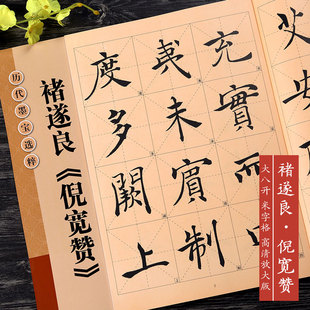 历代墨宝选粹
褚遂良《倪宽赞》
艾安
充實而
夷未賓制
度多闕上
褚遂良·倪宽赞
大八开 米字格 高清放大版